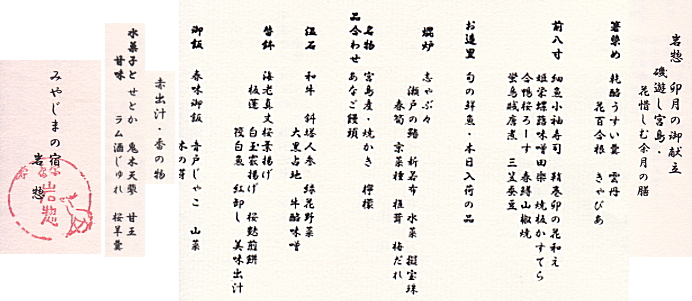 岩惣 卯月の御献立
磯遊し宮島・
花惜しむ余月の膳
箸染め 乾酪うすい羹 雲丹
花百合根 きゃびあ
前八寸 細魚小袖寿司 鞘巻卯の花和え
姫栄螺蕗味噌田楽 焼板かすてら
合鴨桜ろーす 春鱒山椒焼
蛍烏賊唐煮 三笠蚕豆
お造里 旬の鮮魚・本日入荷の品
煖炉 志ゃぶ々
瀬戸の鱚 新若布 水菜 擬宝珠
春筍 京菜種 椎茸 梅だれ
名物 宮島産・焼かき 檸檬
品合わせ あなご饅頭
温石 和牛 斜塔人参 緑花野菜
大黒占地 牛酪味噌
替鉢 海老真丈桜葉揚げ
板蓮 白玉霰揚げ 桜麩煎餅
筏白魚 紅卸し 美味出汁
御飯 春味御飯 音戸じゃこ 山菜
木の芽
赤出汁・香の物
水菓子と せとか 鬼木天蓼 甘王
甘味 ラム酒じゅれ 桜羊羹
みやじまの宿
岩惣
岩惣